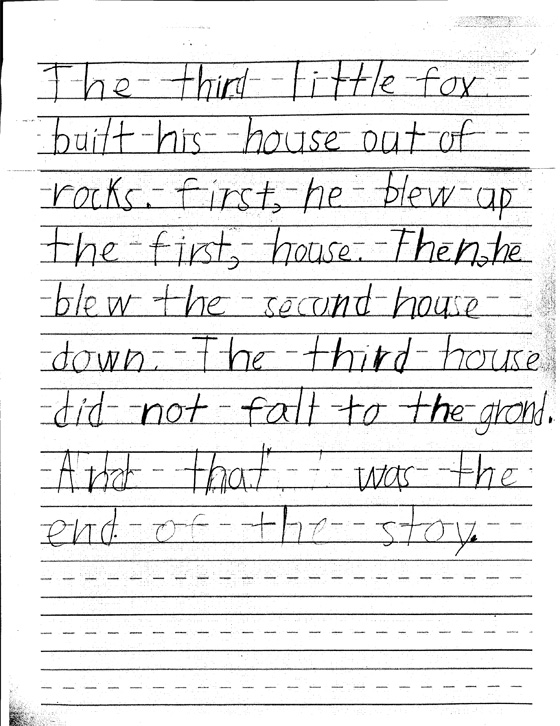 The third little fox
built his house out of
rocks. first, he blew up
the first, house. Then, he
blew the second house
down. The third house
did not fall to the grond.
And that was the
end of the stoy.